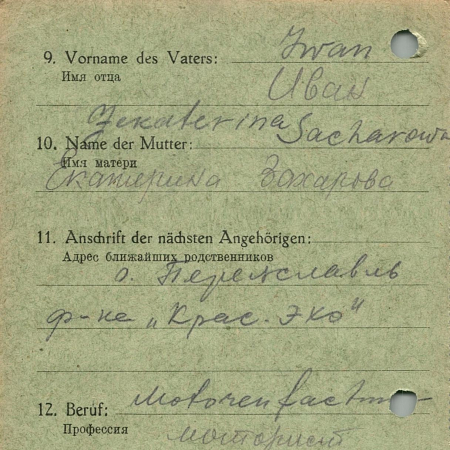 9. Vorname des Vaters: Iwan
Имя отца
Иван
Jekaterina Sacharowa
10. Name der Mutter:
Имя матери
Екатерина Захарова
11. Anschrift der nächsten Angehörigen:
Адрес ближайших родственников
Переяславль
ф-ка „Крас. Эхо"
12. Beruf: Motoren
Профессия
моторист